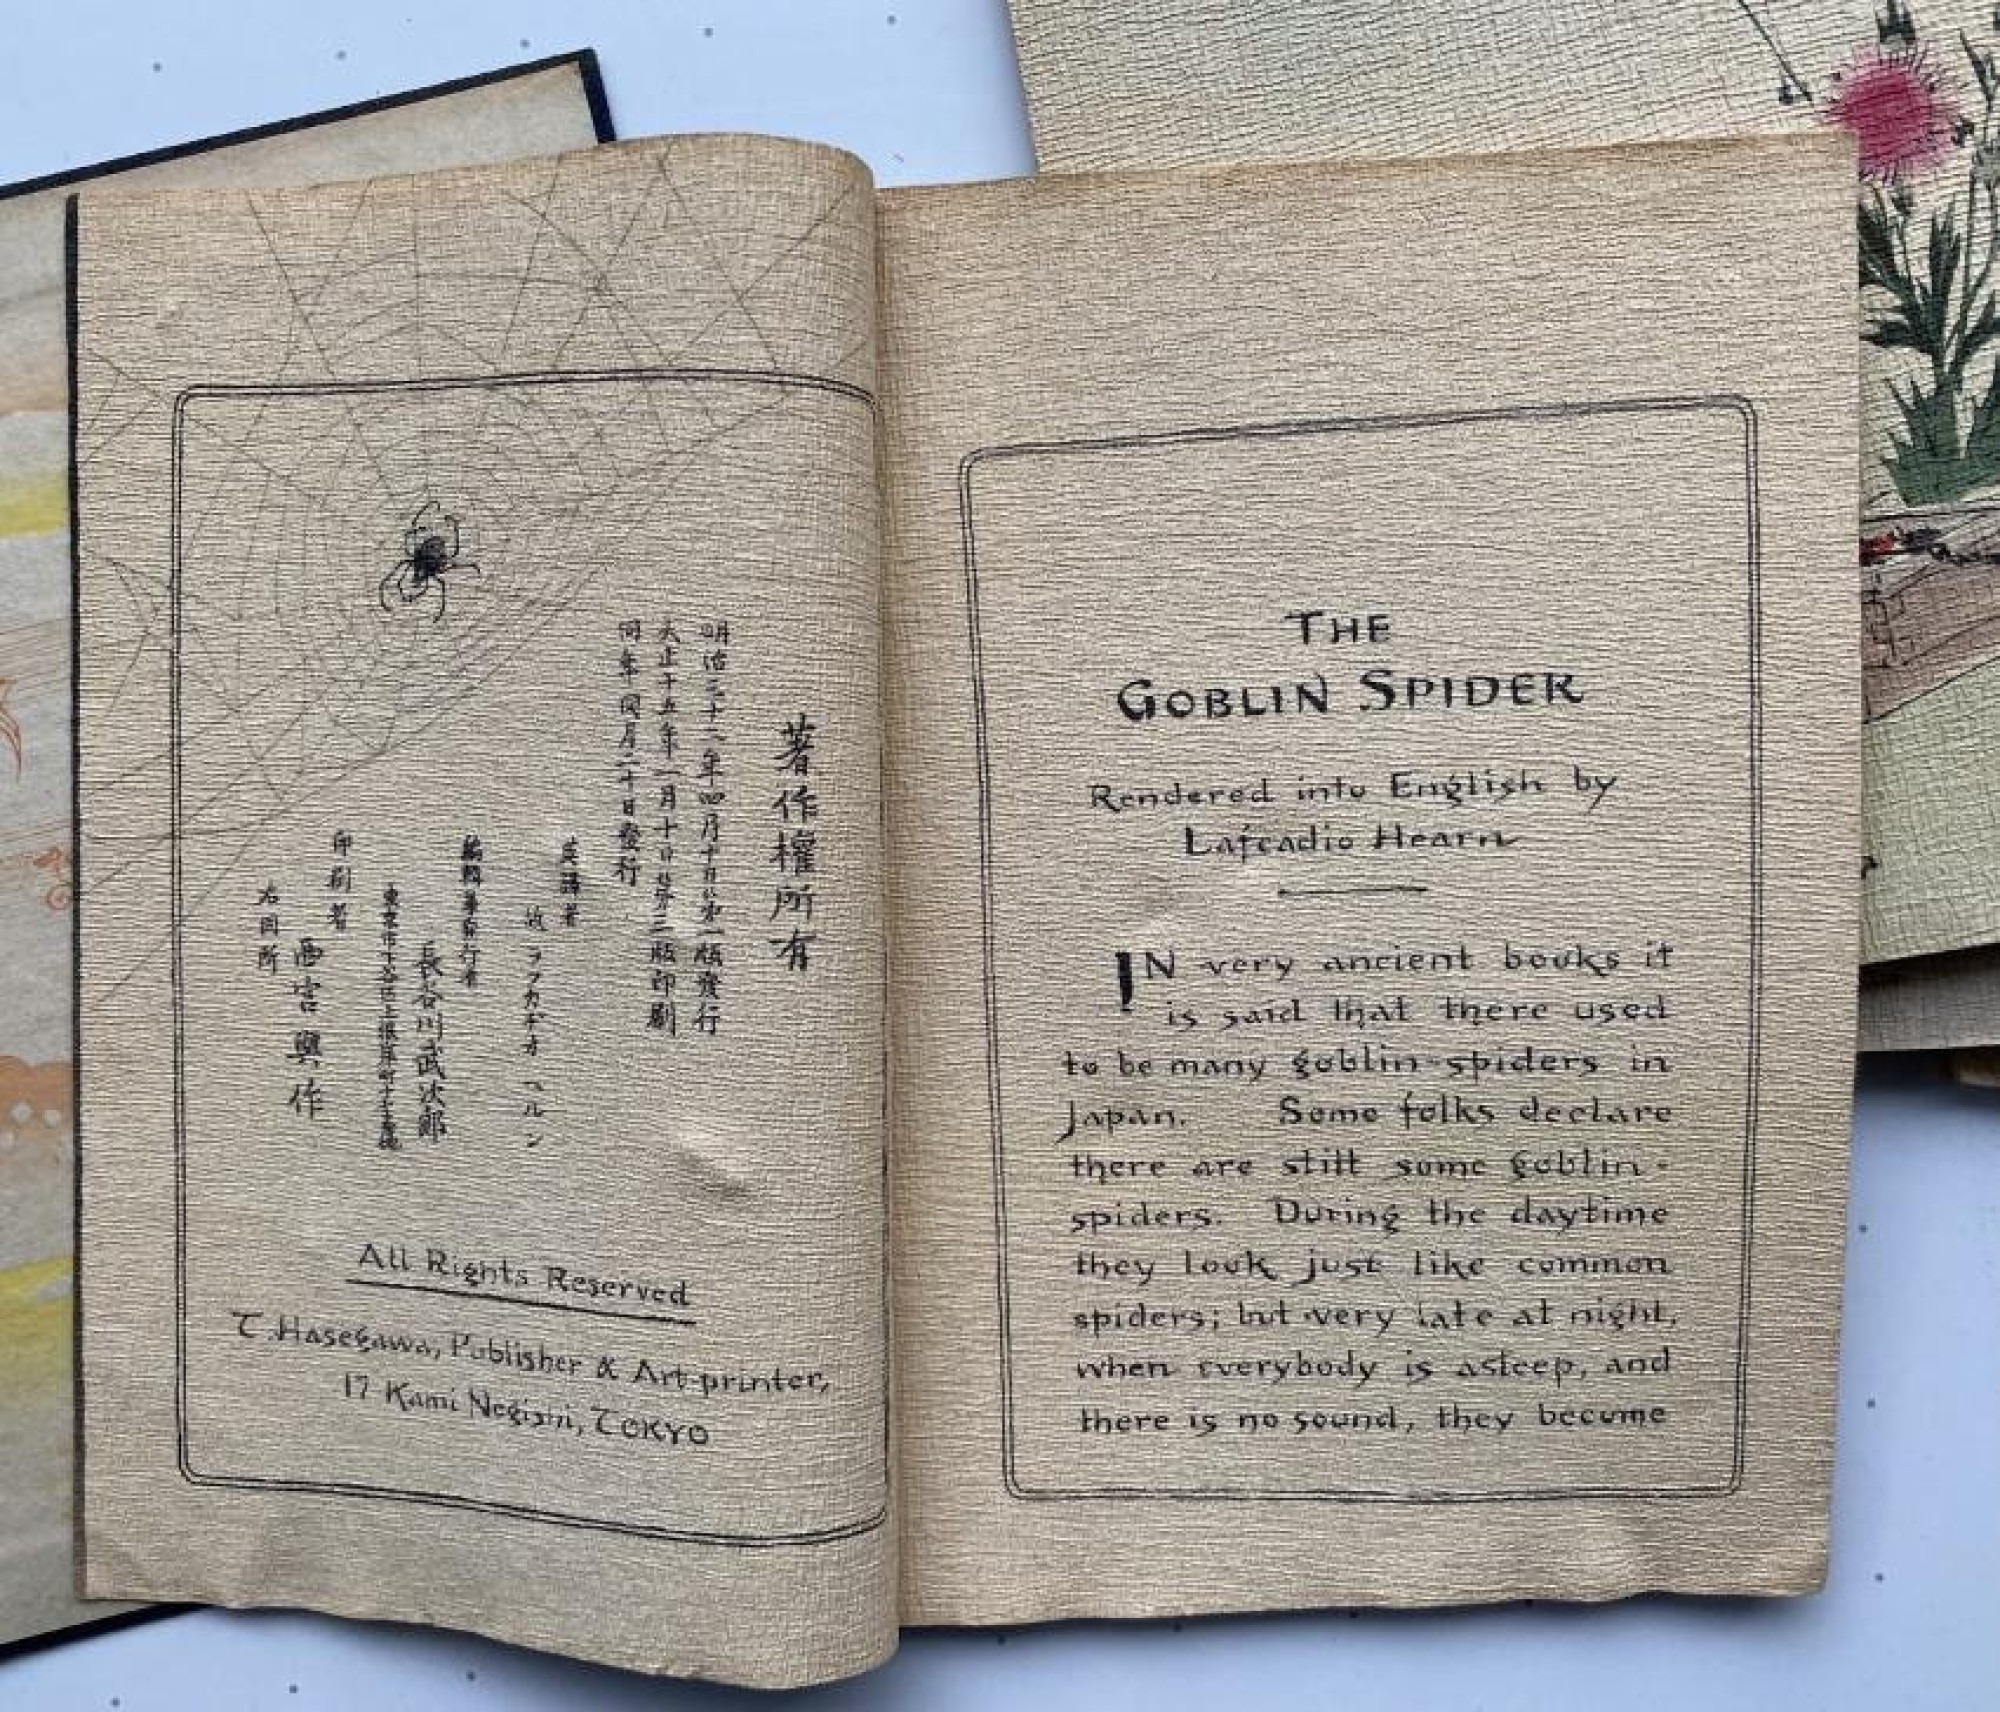 著作權所有
明治三十二年四月十日第一版發行
大正十五年一月十日第三版印刷
同年同月二十日發行
英譯者
故ラフカヂオ ヘルン
編輯兼發行者
長谷川武次郎
東京市下谷區上根岸町十七番地
印刷者
西宮與作
右同所
All Rights Reserved
T. Hasegawa, Publisher & Art-printer,
17 Kami Negishi, TOKYO
THE
GOBLIN SPIDER
Rendered into English by
Lafcadio Hearn
IN very ancient books it
is said that there used
to be many goblin-spiders in
Japan. Some folks declare
there are still some goblin-
spiders. During the daytime
they look just like common
spiders; but very late at night,
when everybody is asleep, and
there is no sound, they become